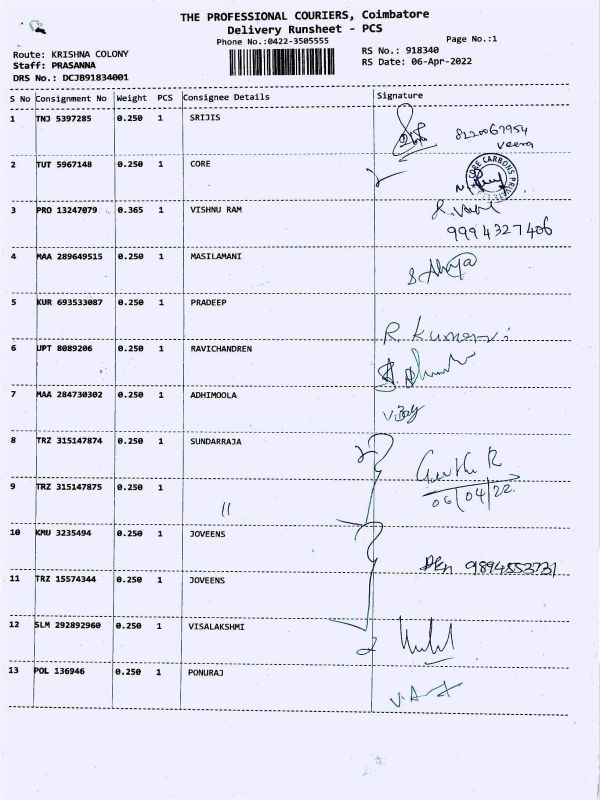 THE PROFESSIONAL COURIERS, Coimbatore
Delivery Runsheet - PCS
Phone No.:0422-3505555
Page No.:1
Route: KRISHNA COLONY
RS No.: 918340
Staff: PRASANNA
RS Date: 06-Apr-2022
DRS No.: DCJB91834001
S No Consignment No Weight PCS Consignee Details Signature
1 TNJ 5397285 0.250 1 SRIJIS
8220067954
veera
2 TUT 5967148 0.250 1 CORE
CORE CARBONS PRIVATE
3 PRO 13247079 0.365 1 VISHNU RAM
9994327406
4 MAA 289649515 0.250 1 MASILAMANI
5 KUR 693533087 0.250 1 PRADEEP
R Kumarvi
6 UPT 8089206 0.250 1 RAVICHANDREN
7 MAA 284730302 0.250 1 ADHIMOOLA
8 TRZ 315147874 0.250 1 SUNDARRAJA
9 TRZ 315147875 0.250 1 "
06/04/22.
10 KMU 3235494 0.250 1 JOVEENS
9894553731
11 TRZ 15574344 0.250 1 JOVEENS
12 SLM 292892960 0.250 1 VISALAKSHMI
13 POL 136946 0.250 1 PONURAJ